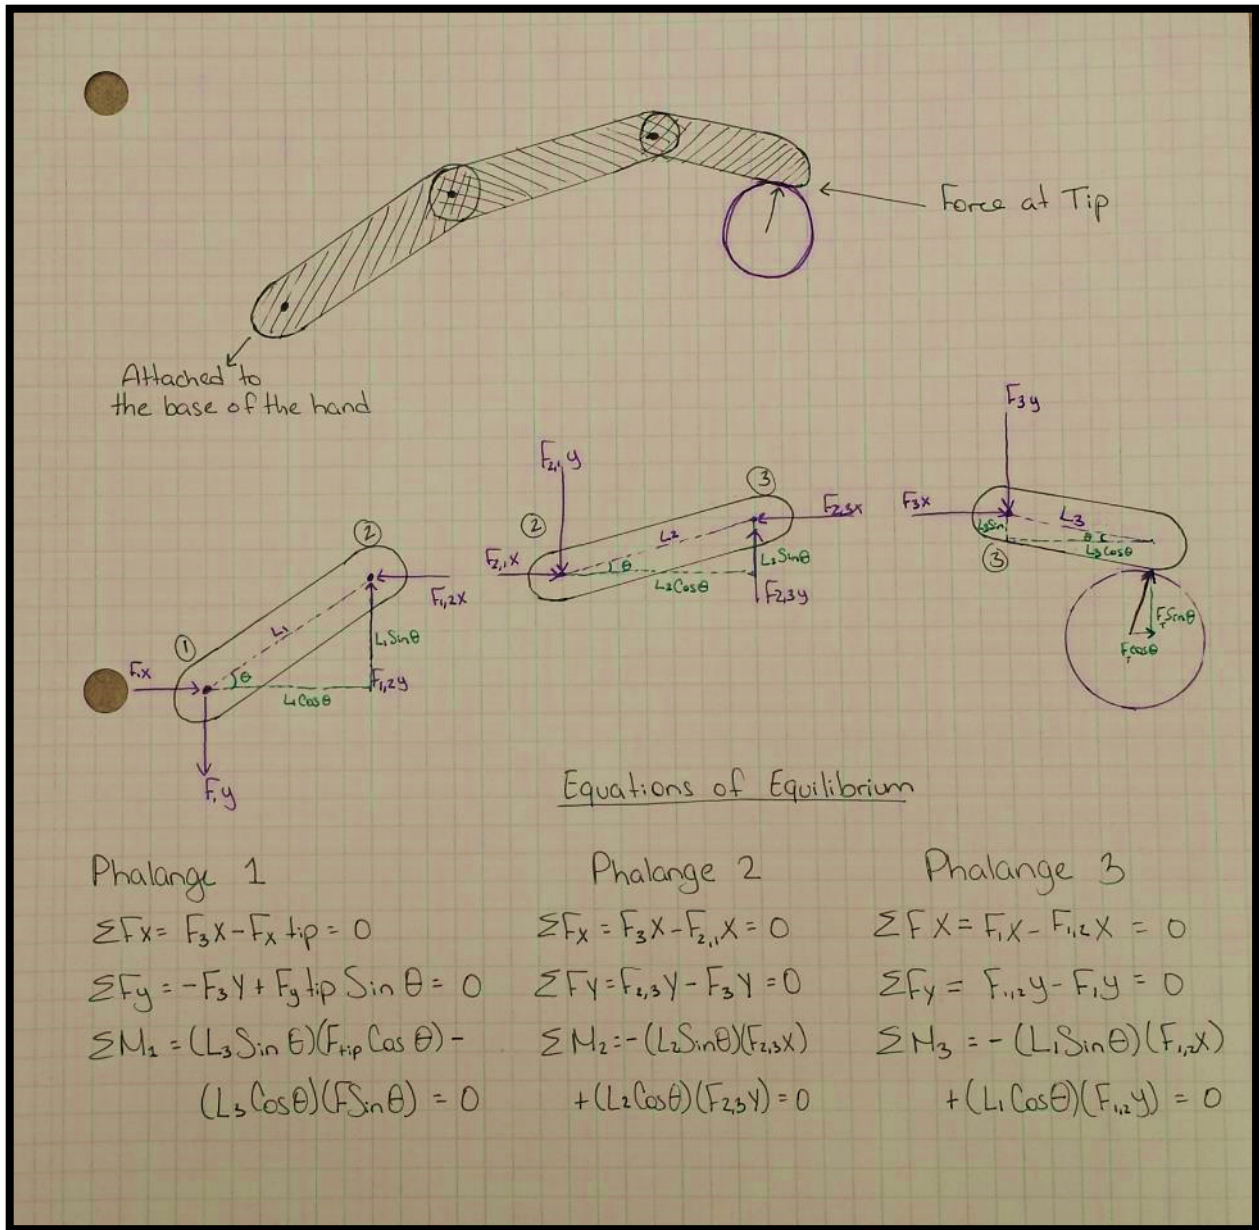 Force at Tip
Attached to
the base of the hand
F3y
F2,1y
③
②
F2,3x
F3x
L3
L2
θ
L3Cosθ
③
②
F2,1x
θ
L2Sinθ
L2Cosθ
F1,2x
F2,3y
①
L1
L1Sinθ
FTSinθ
FTCosθ
F1x
θ
F1,2y
L1Cosθ
F1y
Equations of Equilibrium
Phalange 1
ΣFx = F3x - Fx tip = 0
ΣFy = -F3Y + Fy tip Sin θ = 0
ΣM1 = (L3 Sin θ)(Ftip Cos θ) -
(L3 Cosθ)(FSinθ) = 0
Phalange 2
ΣFx = F3X - F2,1X = 0
ΣFY = F2,3Y - F3Y = 0
ΣM2 = -(L2Sinθ)(F2,3X)
+(L2Cosθ)(F2,3Y) = 0
Phalange 3
ΣFX = F1X - F1,2X = 0
ΣFy = F1,2y - F1y = 0
ΣM3 = -(L1Sinθ)(F1,2X)
+(L1Cosθ)(F1,2y) = 0